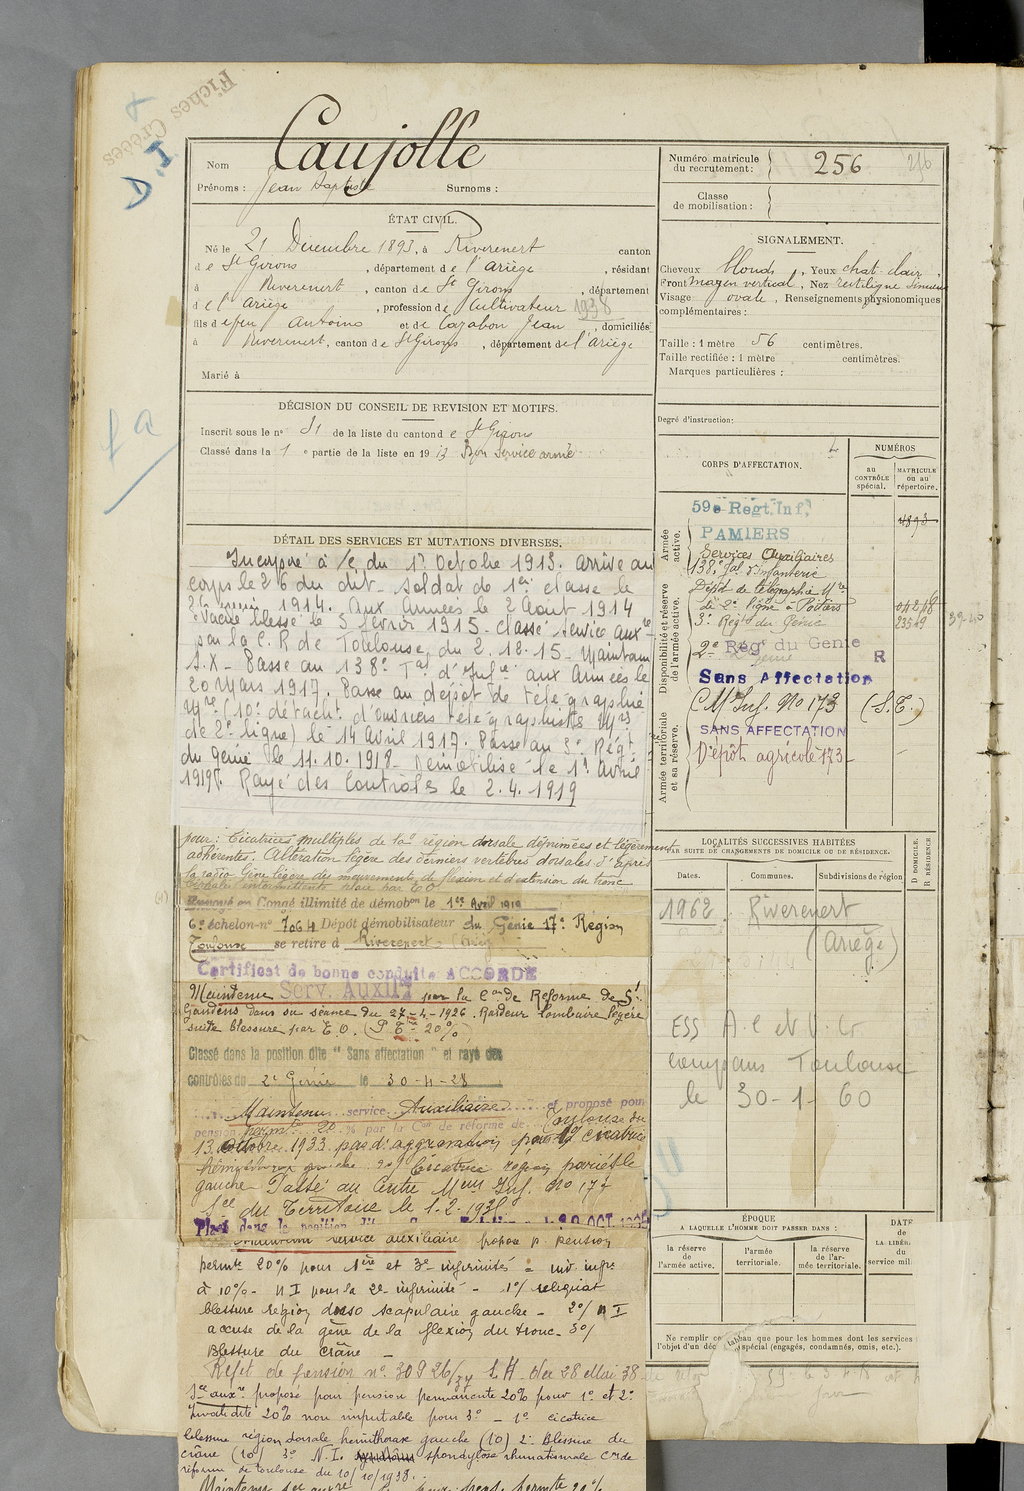 Fiches Créées
D.I
Caujolle
Nom
Prénoms : Jean Baptiste Surnoms :
ÉTAT CIVIL.
Né le 21 Décembre 1893, à Riverenert canton
de St Girons, département de l'Ariège, résidant
à Riverenert, canton de St Girons, département
de l'Ariège, profession de Cultivateur 1938
fils de feu Antoine et de Cazabon Jean, domiciliés
à Riverenert, canton de St Girons, département de l'Ariège
Marié à
DÉCISION DU CONSEIL DE REVISION ET MOTIFS.
Inscrit sous le n° 31 de la liste du canton de St Girons
Classé dans la 1e partie de la liste en 1913 Bon Service armé
DÉTAIL DES SERVICES ET MUTATIONS DIVERSES.
Incorporé à /c du 1r Octobre 1913. Arrivé au
corps le 26 du dit. Soldat de 1ère classe le
1914. Aux Armées le 2 Août 1914
Evacué blessé le 5 février 1915. Classé service auxre
par la C.R de Toulouse du 2.18.15. Maintenu
S.X. Passé au 138e Tal d'Infie aux Armées le
20 Mars 1917. Passé au dépôt de télégraphie
Mre (10e détacht d'ouvriers télégraphistes Mres
de 2e ligne) le 14 Avril 1917. Passé au 3e Régt
du Génie le 11.10.1918. Démobilisé le 1r Avril
1919. Rayé des Contrôles le 2.4.1919
pour : Cicatrices multiples de la région dorsale déprimées et légèrement
adhérentes. Altération légère des derniers vertèbres dorsales d'après
la radio Gêne légère des mouvements de flexion et d'extension du tronc
par EO.
Envoyé en Congé illimité de démobon le 1er Avril 1919
6e échelon n° 7064 Dépôt démobilisateur du Génie 17e Région
Toulouse se retire à Riverenert (Ariège)
Certificat de bonne conduite ACCORDÉ
Maintenu Serv. Auxre par la Con de Réforme de St
Gaudens dans sa séance du 27-4-1926. Raideur lombaire légère
suite blessure par E.O. (P Tre 20%)
Classé dans la position dite "Sans affectation" et rayé des
contrôles du 2e Génie le 30-4-28
Maintenu service Auxiliaire et proposé pour
pension permte 20 % par la Con de réforme de Toulouse du
13 Octobre 1933 pas d'aggravation pour 1° cicatrice
hémithorax gauche 2° Cicatrice région pariétale
gauche Passé au Centre Mun Inf. No 173
Sce du Territoire le 1.2.193
Placé dans la position dite
service auxiliaire proposé p. pension
permte 20% pour 1ère et 3e infirmités = inv. infre
à 10% - N I pour la 2e infirmité - 1°/ reliquat
blessure région dorso scapulaire gauche - 2°/ N I
accuse de la gêne de la flexion du tronc - 3°/
Blessure du crâne -
Rejet de pension n° 30926/37 L H du 28 Mai 38
Sce auxre proposé pour pension permanente 20% pour 1° et 2°
Invalidité 20% non imputable pour 3° - 1° cicatrice
blessure région dorsale hemithorax gauche (10) 2° Blessure du
crâne (10) 3° N.I. spondylose rhumatismale Con de
réforme de Toulouse du 10/10/1938.
Numéro matricule du recrutement : 256
Classe de mobilisation :
SIGNALEMENT.
Cheveux blonds, Yeux chat. clair,
Front moyen vertical, Nez rectiligne sinueux
Visage ovale, Renseignements physionomiques
complémentaires :
Taille : 1 mètre 56 centimètres.
Taille rectifiée : 1 mètre centimètres.
Marques particulières :
Degré d'instruction:
CORPS D'AFFECTATION.
NUMÉROS
au CONTRÔLE spécial.
MATRICULE ou au répertoire.
Armée active.
59e Régt. Inf.
4893
PAMIERS
Services Auxiliaires
138e Tal d'infanterie
Disponibilité et réserve de l'armée active.
Dépôt de télégraphie Mre
de 2e ligne à Poitiers
3e Régt du Génie 23519 39-40
2e Régt du Génie R
Sans Affectation
C M Inf. No 173 (S.E.)
Armée territoriale et sa réserve.
SANS AFFECTATION
Dépôt agricole 173
LOCALITÉS SUCCESSIVES HABITÉES
PAR SUITE DE CHANGEMENTS DE DOMICILE OU DE RÉSIDENCE.
Dates. Communes. Subdivisions de région
D DOMICILE. R RÉSIDENCE
1962 Riverenert
(Ariège)
ESS A.C et V. G
Compans Toulouse
le 30-1-60
ÉPOQUE
A LAQUELLE L'HOMME DOIT PASSER DANS :
la réserve de l'armée active.
l'armée territoriale.
la réserve de l'armée territoriale.
DATE
DE
LA LIBÉR.
du
service mil
Ne remplir ce tableau que pour les hommes dont les services
l'objet d'un déc spécial (engagés, condamnés, omis, etc.).